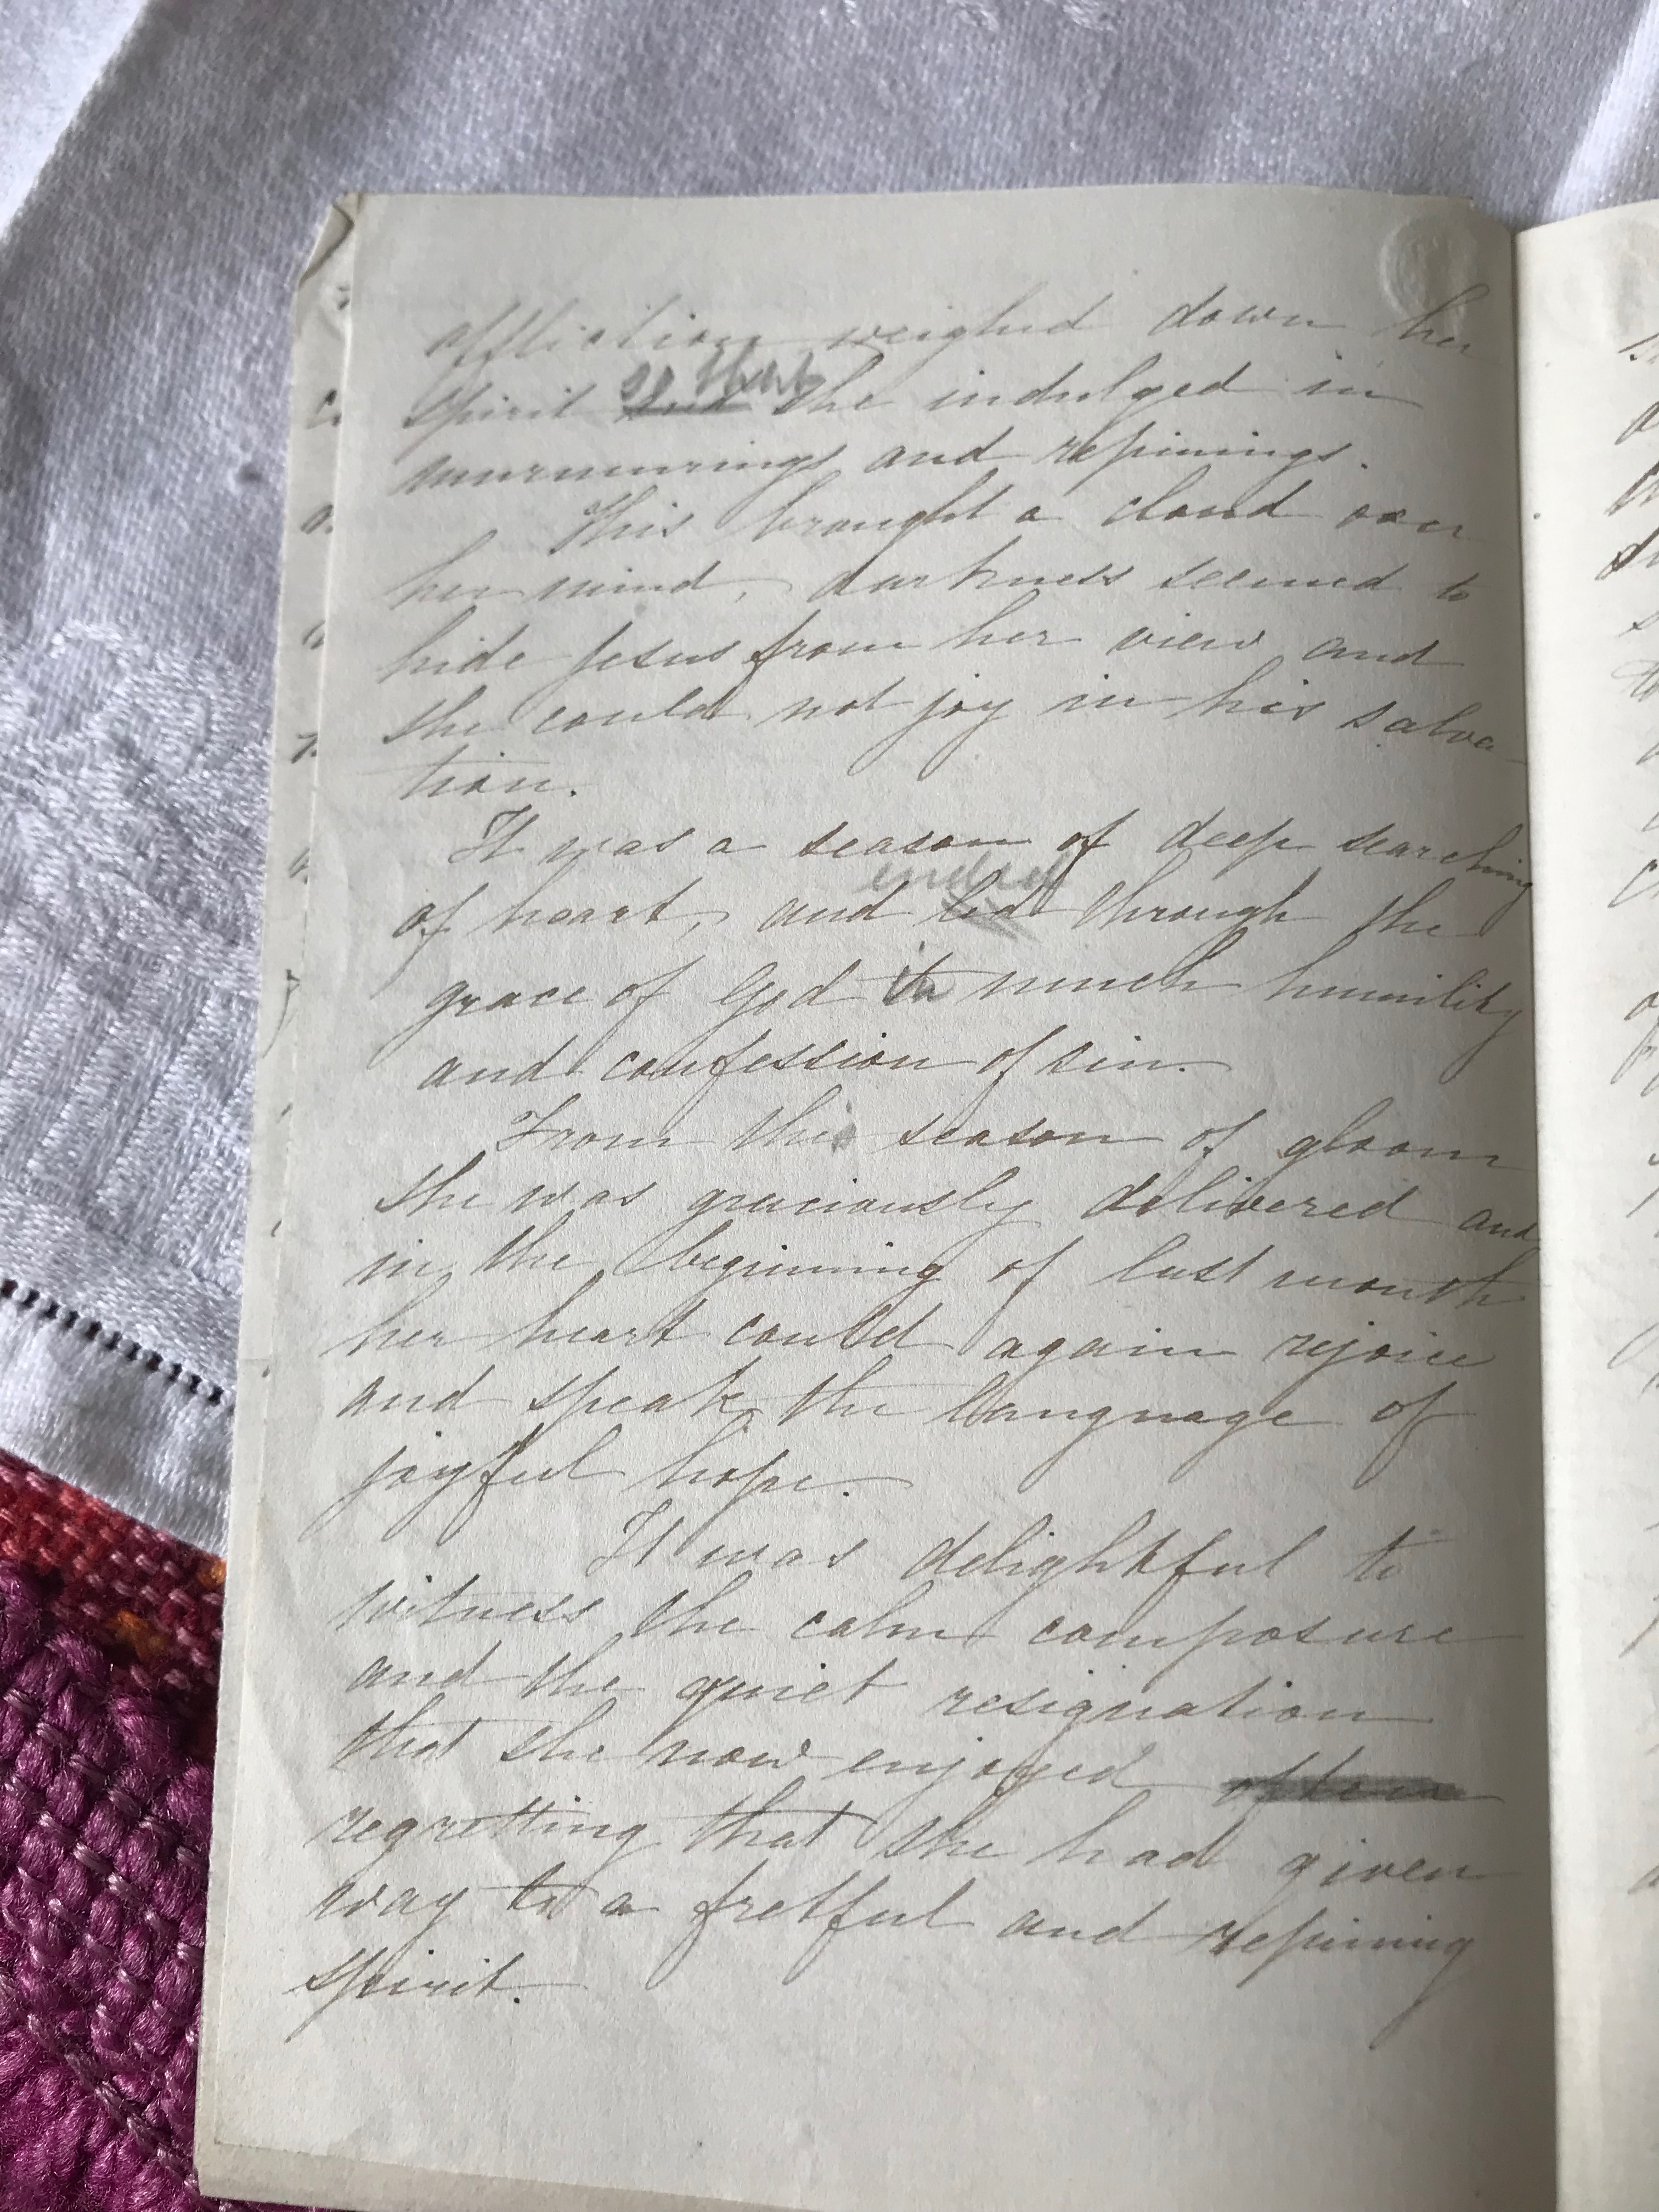 affliction weighed down her
spirit and so that she indulged in
murmurings and repinings.
This brought a cloud over
her mind, darkness seemed to
hide Jesus from her view and
she could not joy in his salva-
tion.
It was a season of deep searching
of heart, and led ended through the
grace of God in much humility
and confession of sin.
From this season of gloom
she was graciously delivered and
in the beginning of last month
her heart could again rejoice
and speak the language of
joyful hope.
It was delightful to
witness the calm composure
and the quiet resignation
that she now enjoyed often
regretting that she had given
way to a fretful and repining
spirit.